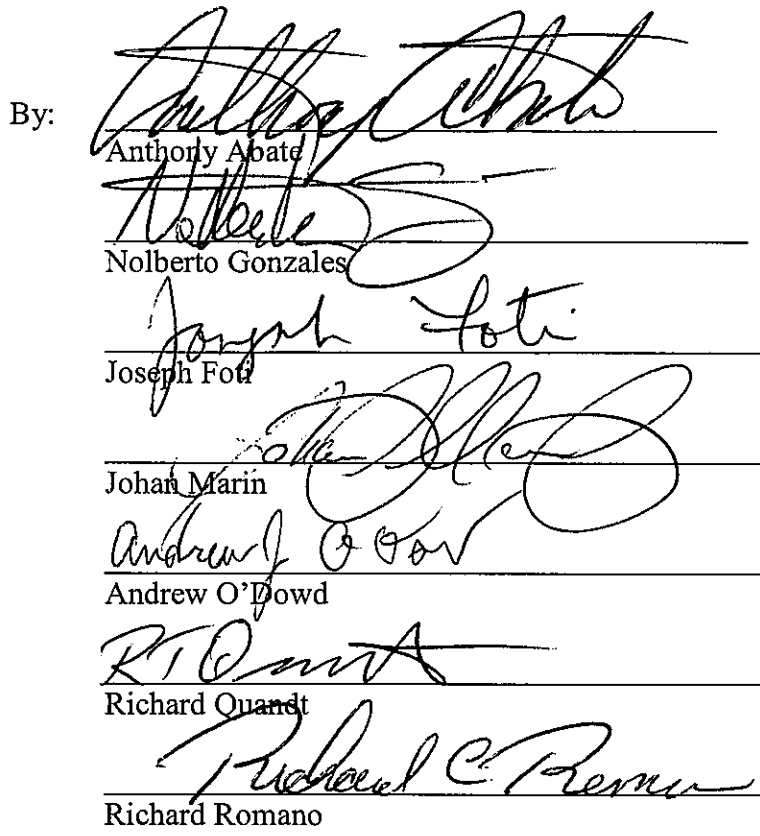 By:
Anthony Abate
Anthony Abate
Nolberto
Nolberto Gonzales
Joseph Foti
Joseph Foti
Johan Marin
Andrew J O'Dowd
Andrew O'Dowd
RT Quandt
Richard Quandt
Richard C Romano
Richard Romano